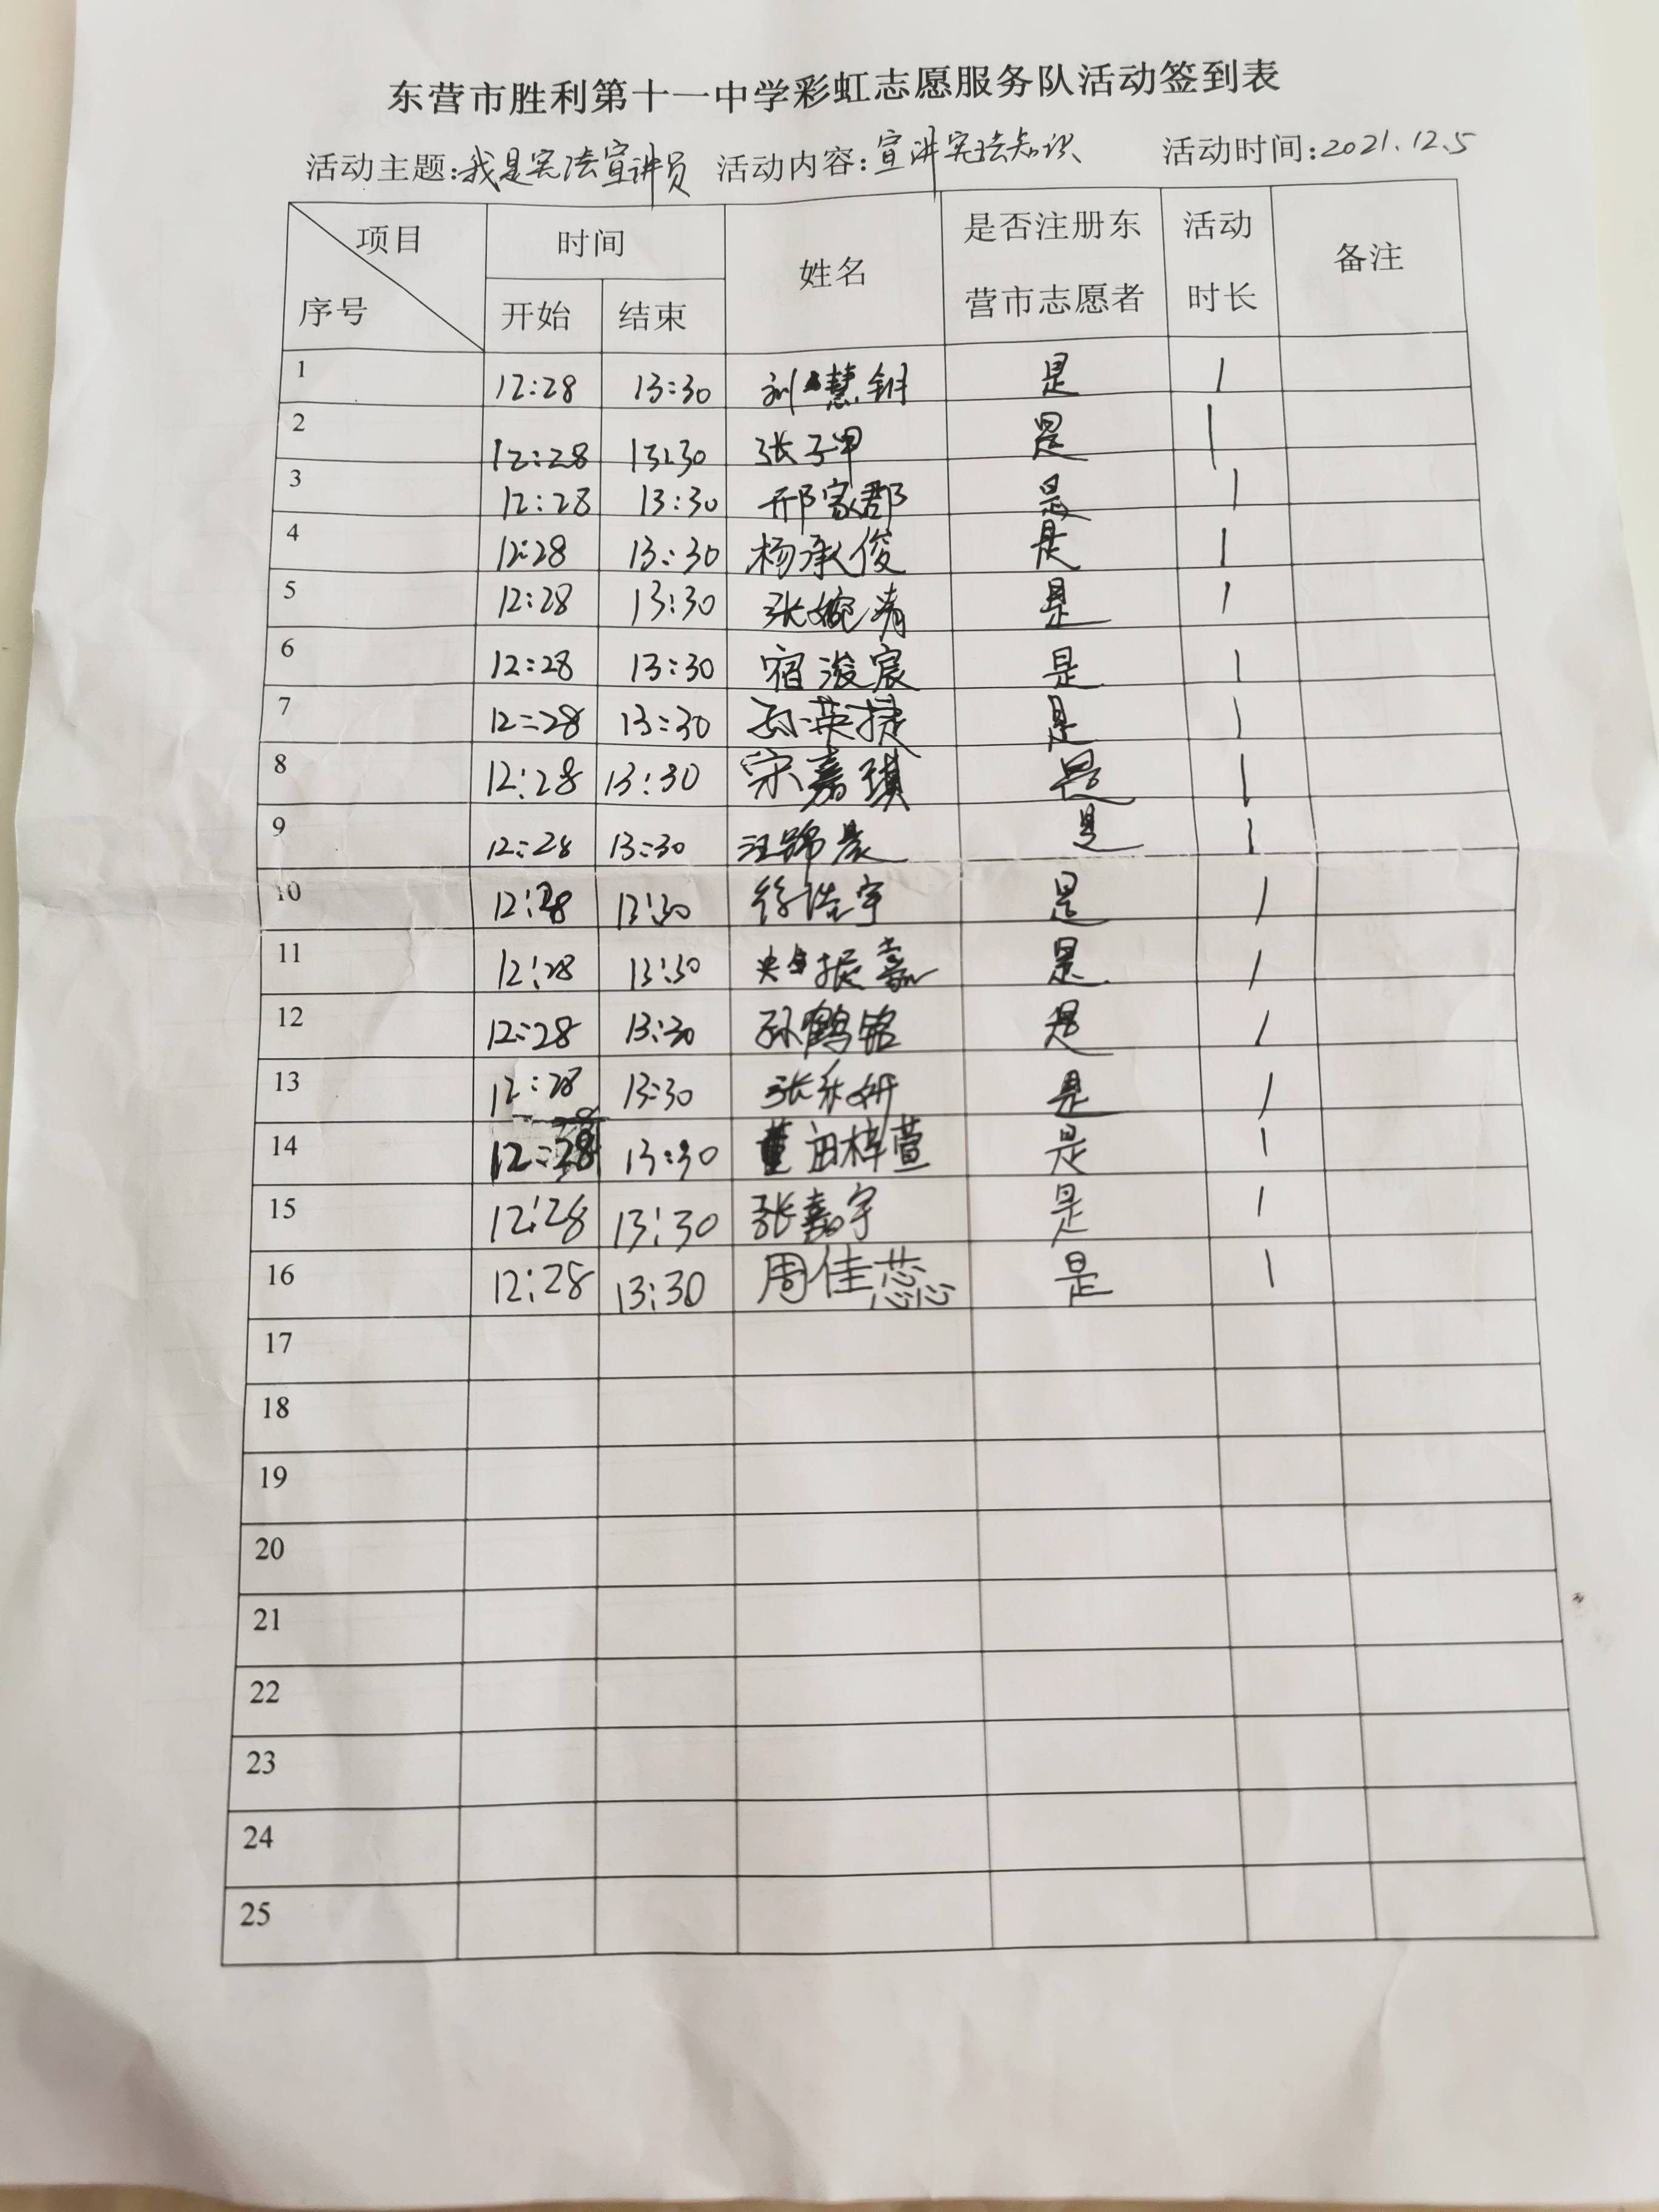 东营市胜利第十一中学彩虹志愿服务队活动签到表
活动主题:我是宪法宣讲员 活动内容:宣讲宪法知识 活动时间:2021.12.5
项目 时间 姓名 是否注册东 活动 备注
序号 开始 结束 营市志愿者 时长
1 12:28 13:30 刘慧钥 是 1
2 12:28 13:30 张子甲 是 1
3 12:28 13:30 邢家郡 是 1
4 12:28 13:30 杨承俊 是 1
5 12:28 13:30 张婉清 是 1
6 12:28 13:30 宿浚宸 是 1
7 12:28 13:30 孙英捷 是 1
8 12:28 13:30 宋嘉琪 是 1
9 12:28 13:30 汪锦晨 是 1
10 12:28 13:30 徐浩宇 是 1
11 12:28 13:30 振嘉 是 1
12 12:28 13:30 孙鹤铭 是 1
13 12:28 13:30 张 妍 是 1
14 12:28 13:30 田梓萱 是 1
15 12:28 13:30 张嘉宇 是 1
16 12:28 13:30 周佳蕊 是 1
17
18
19
20
21
22
23
24
25